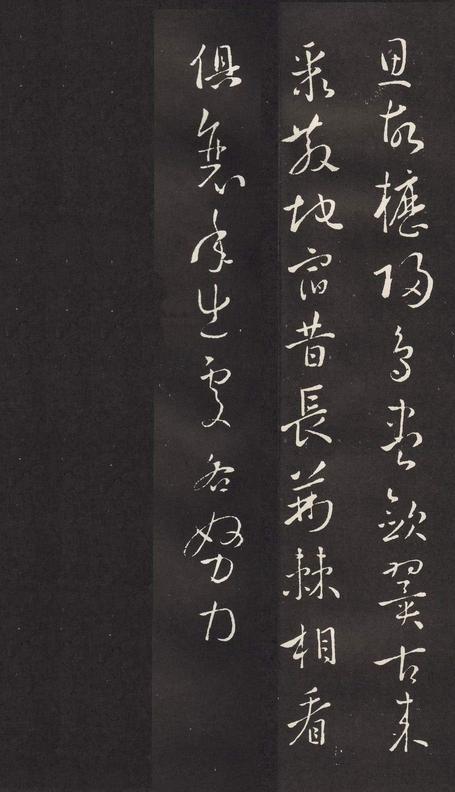 思故櫪歸鳥盡斂翼古來
聚散地宿昔長荊棘相看
俱衰年出處各努力